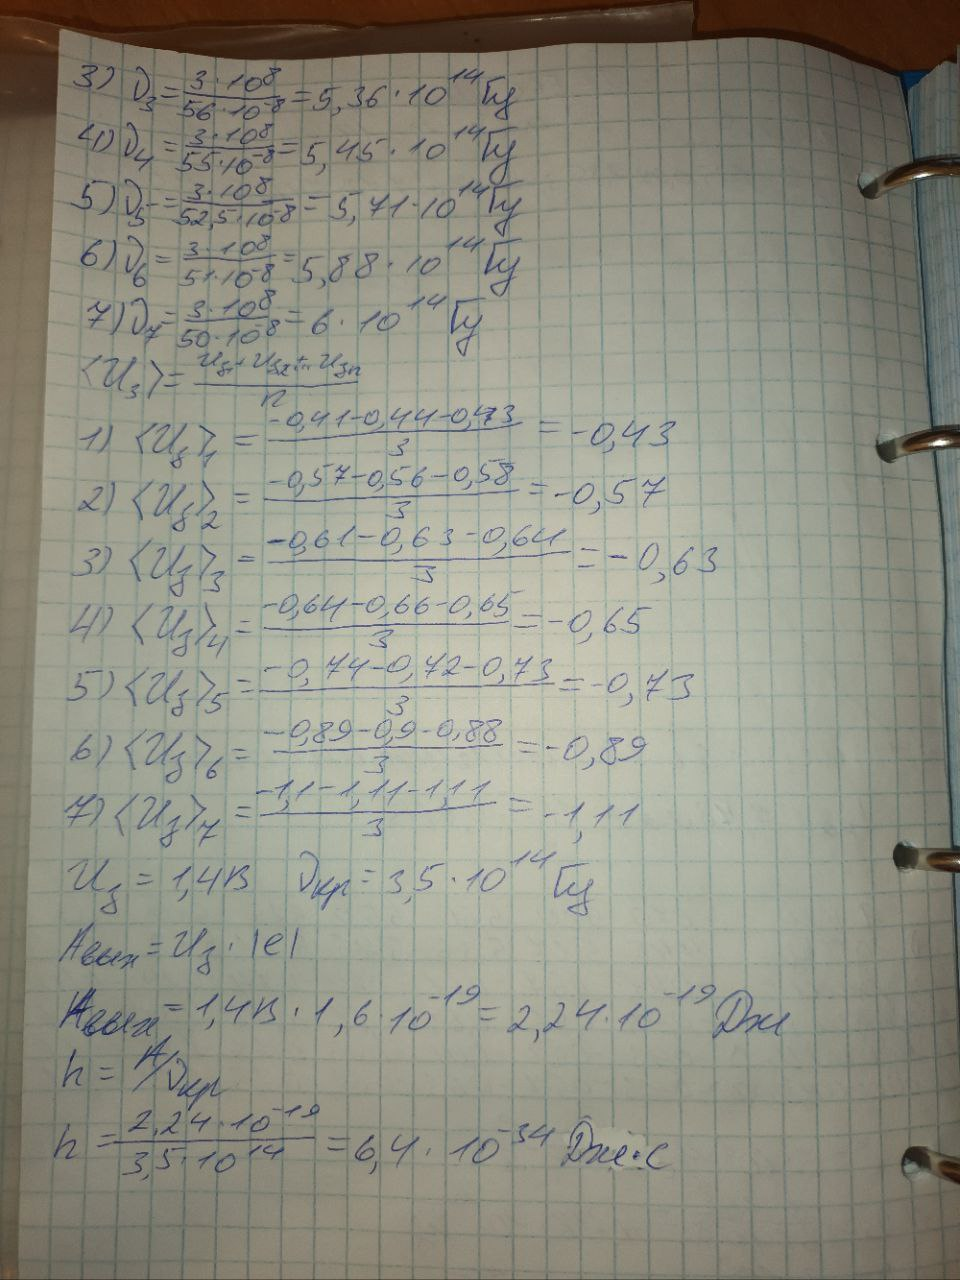 3) ν₃ = 3·10⁸/56·10⁻⁸ = 5,36·10¹⁴ Гц
4) ν₄ = 3·10⁸/55·10⁻⁸ = 5,45·10¹⁴ Гц
5) ν₅ = 3·10⁸/52,5·10⁻⁸ = 5,71·10¹⁴ Гц
6) ν₆ = 3·10⁸/51·10⁻⁸ = 5,88·10¹⁴ Гц
7) ν₇ = 3·10⁸/50·10⁻⁸ = 6·10¹⁴ Гц
⟨U₃⟩ = Uз₁+Uз₂+...Uзₙ/n
1) ⟨Uз⟩₁ = -0,41-0,44-0,43/3 = -0,43
2) ⟨Uз⟩₂ = -0,57-0,56-0,58/3 = -0,57
3) ⟨Uз⟩₃ = -0,61-0,63-0,64/3 = -0,63
4) ⟨Uз⟩₄ = -0,64-0,66-0,65/3 = -0,65
5) ⟨Uз⟩₅ = -0,74-0,72-0,73/3 = -0,73
6) ⟨Uз⟩₆ = -0,89-0,9-0,88/3 = -0,89
7) ⟨Uз⟩₇ = -1,1-1,11-1,11/3 = -1,11
Uз = 1,4В νкр = 3,5·10¹⁴ Гц
Aвых = Uз·|e|
Aвых = 1,4В·1,6·10⁻¹⁹ = 2,24·10⁻¹⁹ Дж
h = A/νкр
h = 2,24·10⁻¹⁹/3,5·10¹⁴ = 6,4·10⁻³⁴ Дж·с